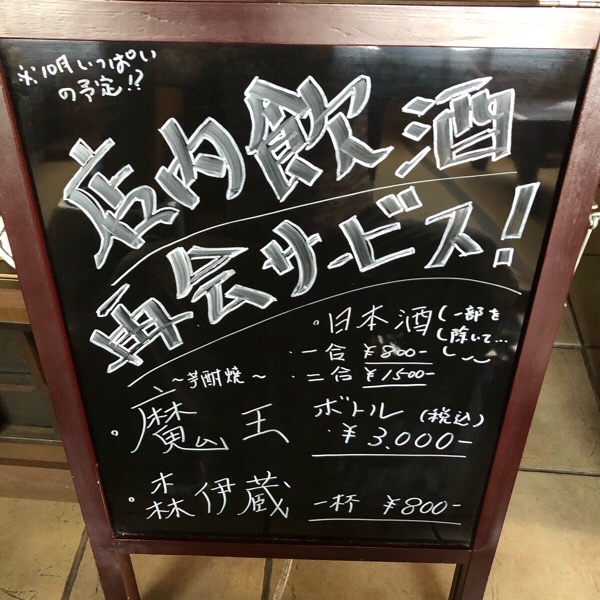 ※10月いっぱい
の予定!?
店内飲酒
再会サービス!
・日本酒(一部を
除いて…
・一合 ¥800-
・二合 ¥1500-
〜芋酎焼〜
・魔王 ボトル(税込)
・¥3,000-
・森伊蔵 一杯 ¥800-